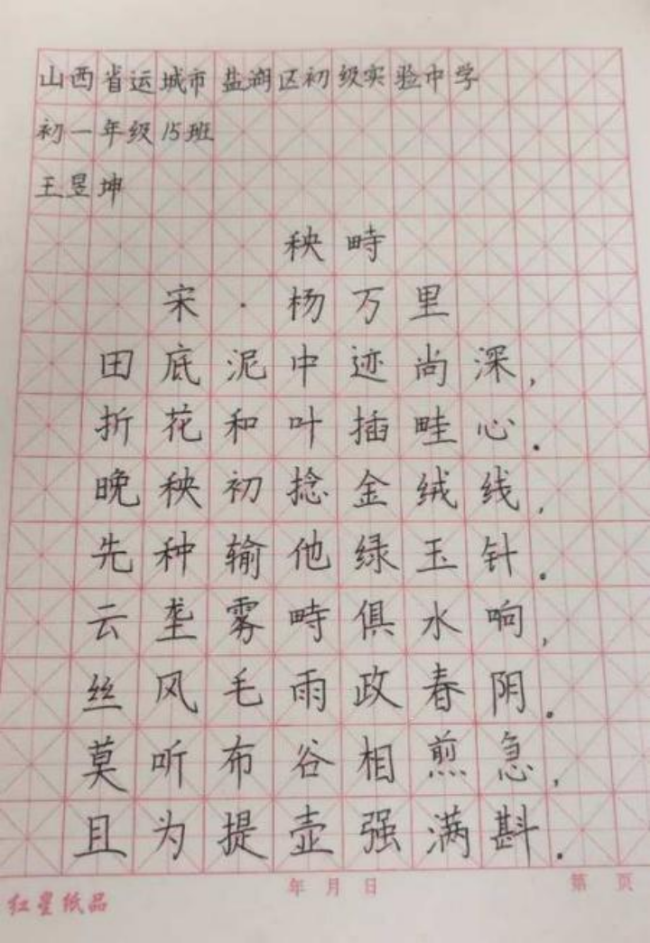 山西省运城市盐湖区初级实验中学
初一年级15班
王昱坤
秧畤
宋·杨万里
田底泥中迹尚深,
折花和叶插畦心.
晚秧初捻金绒线,
先种输他绿玉针.
云垄雾畤俱水响,
丝风毛雨政春阴.
莫听布谷相煎急,
且为提壶强满斟.
红星纸品 年 月 日 第 页